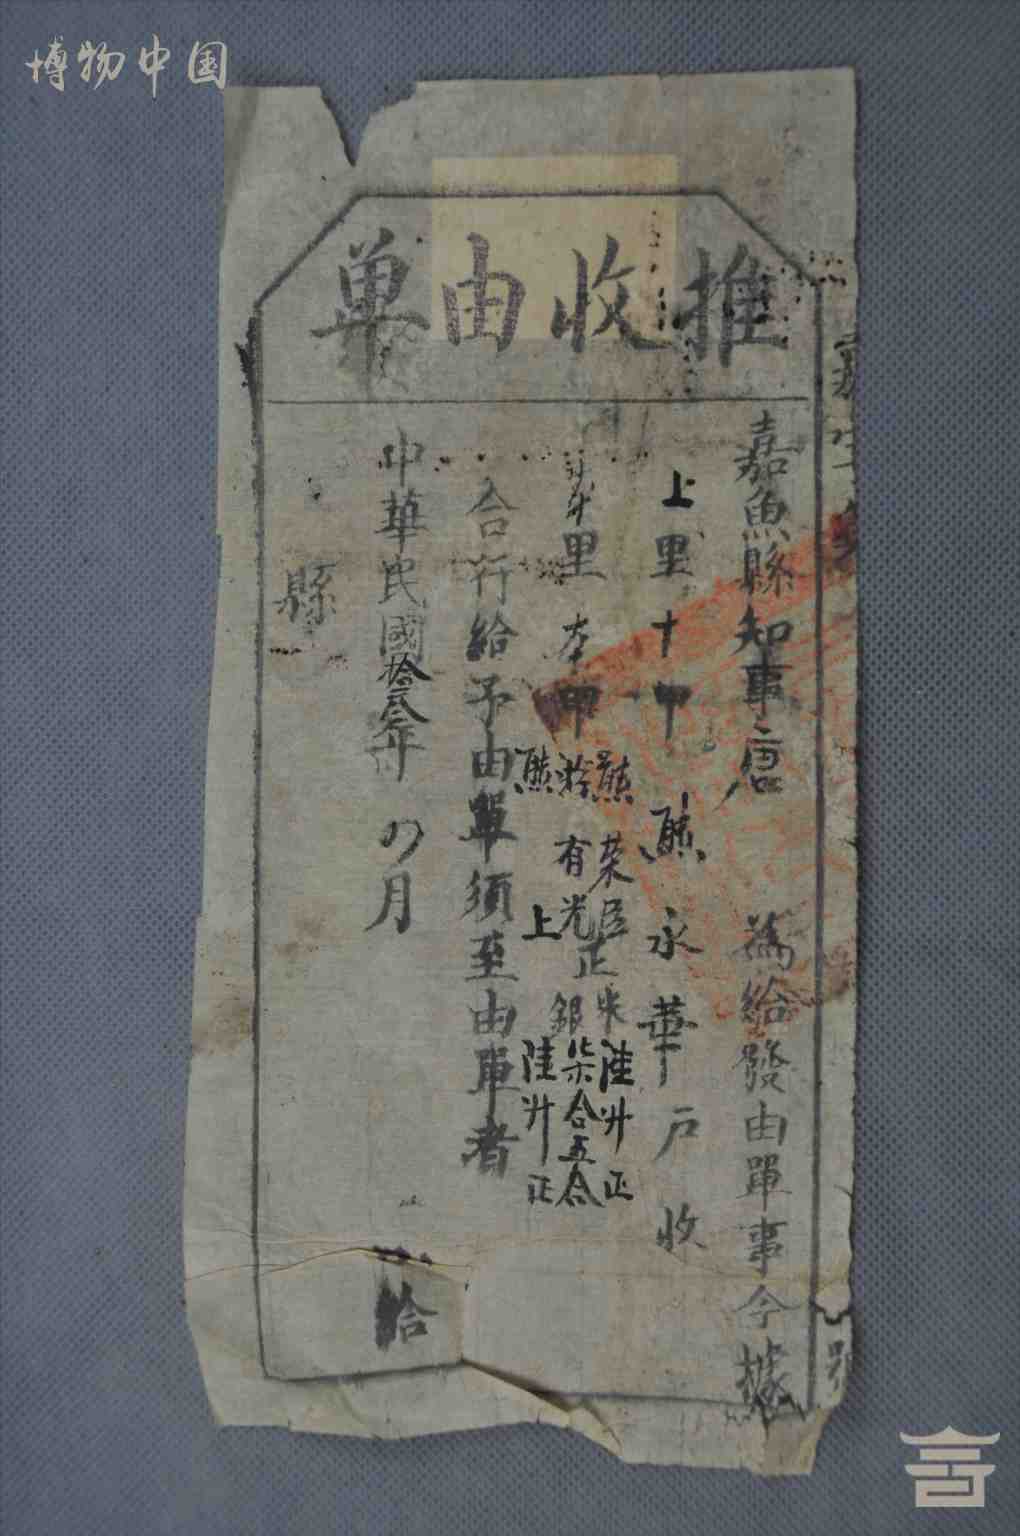 博物中国
推收由單
嘉魚縣知事唐 為給發由單事今據
上里十甲熊永華戶收
里本甲
熊荣臣正米陸升正
有光正銀柒合五合
熊 上 陸升正
合行給予由單須至由單者
中華民國拾叁年 月 給
縣
號